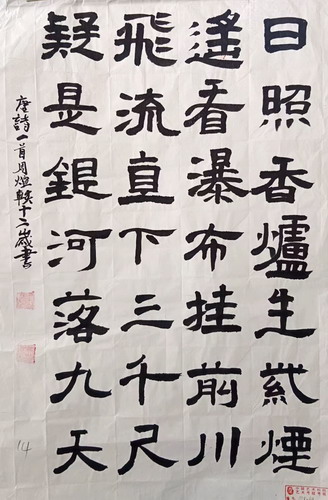 日照香爐生紫煙
遙看瀑布挂前川
飛流直下三千尺
疑是銀河落九天
唐詩一首周煊轶十二歲書
14